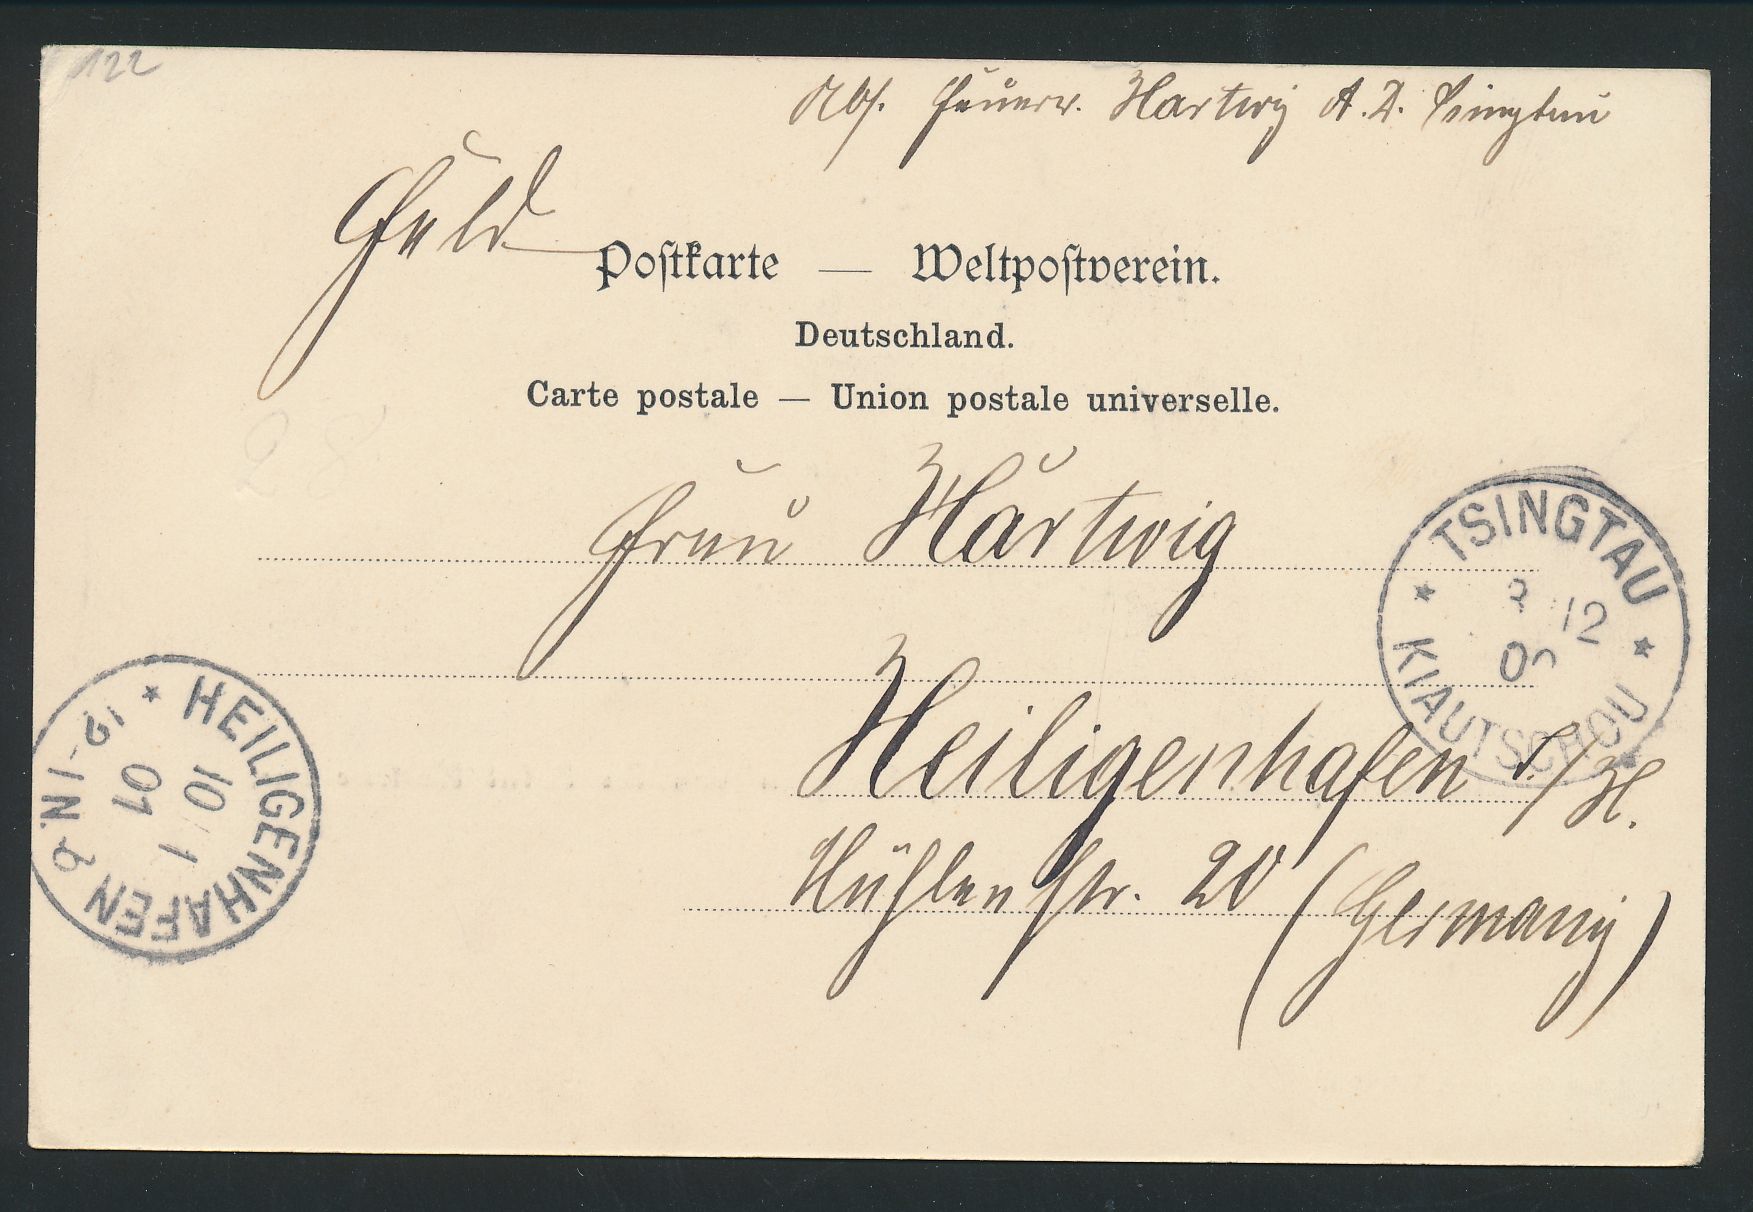 122
Abs. Feuerw. Hartwig A. D. Tsingtau
Feld
Postkarte — Weltpostverein.
Deutschland.
Carte postale — Union postale universelle.
Frau Hartwig
TSINGTAU
12
KIAUTSCHOU
Heiligenhafen
HEILIGENHAFEN
10 1
01
12-1 N.
Mühlenstr. 20 (Germany)